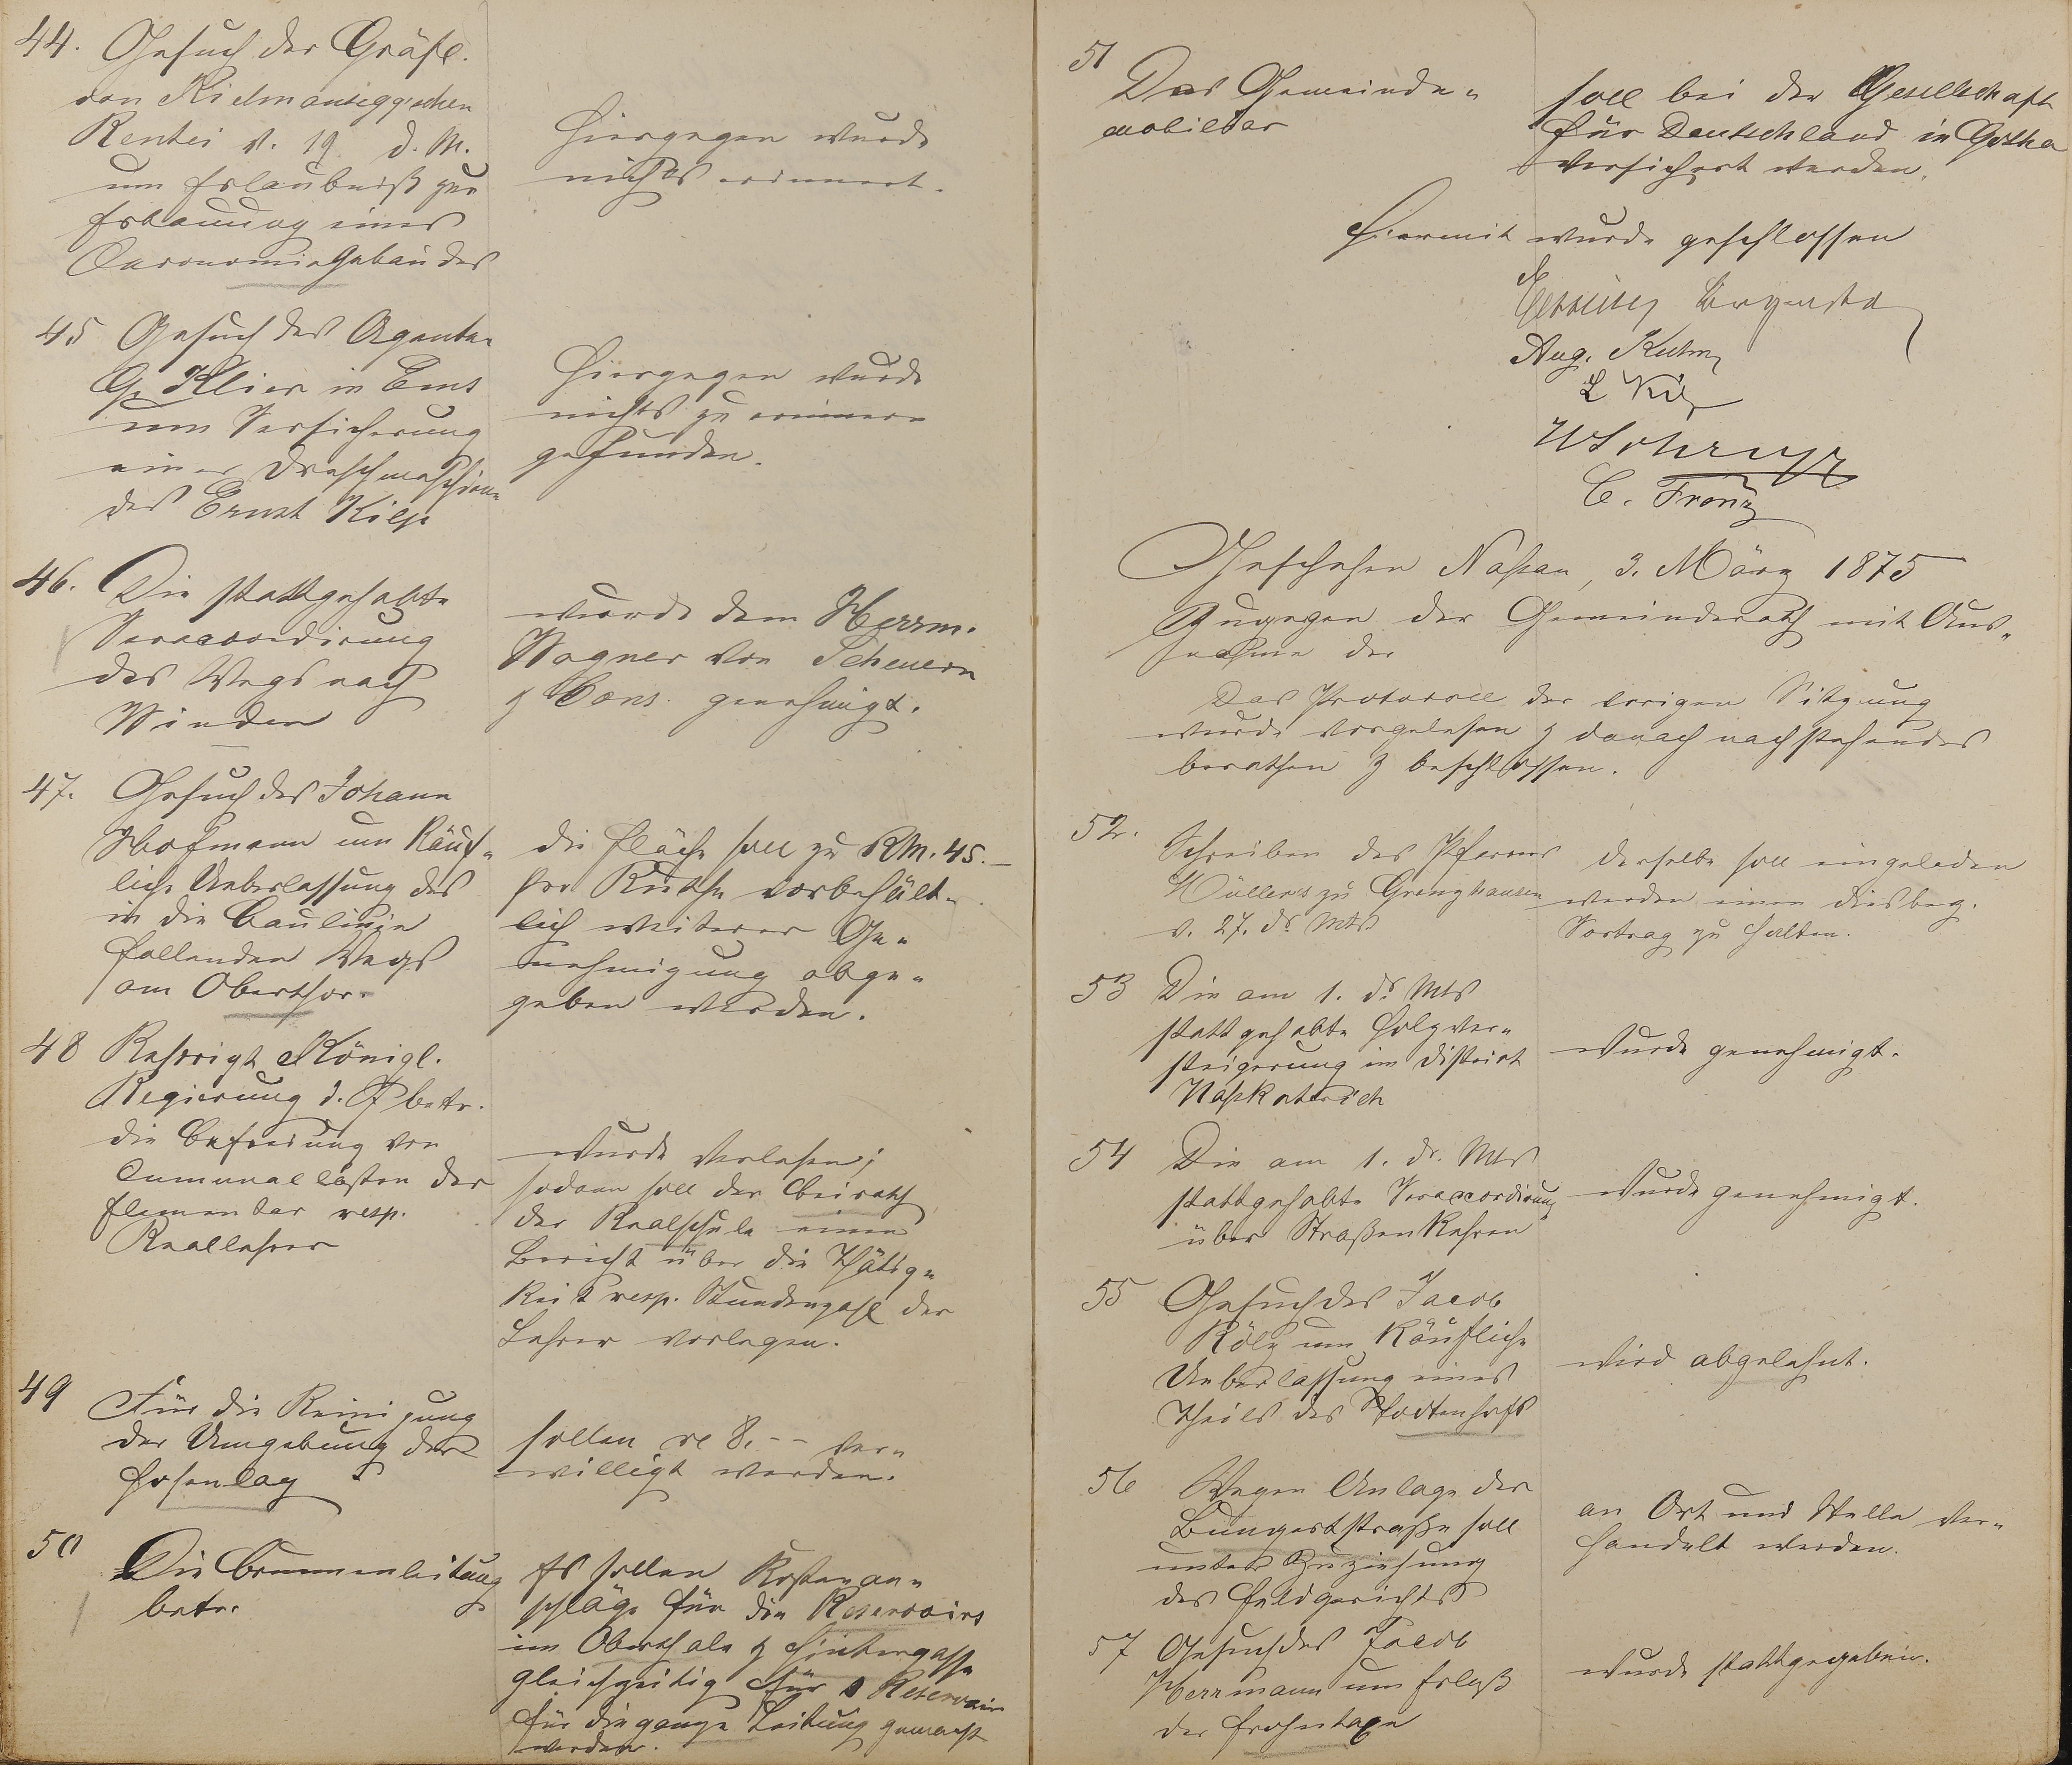 44. Gesuch der Gräfl.
von Kielmanseggschen
Rentei v. 19. d. M.
um Erlaubniß zur
Erbauung eines
Oeconomiegebäudes
Hiergegen wurde
nichts erinnert.
45 Gesuch des Agenten
G. Klier in Ems
um Versicherung
einer Dreschmaschine
des Ernst Kilp
Hiergegen wurde
nichts zu erinnern
gefunden.
46. Die stattgehabte
Veraccordirung
des Wegs nach
Winden
wurde dem Herrm.
Wagner von Scheuern
& Cons. genehmigt.
47. Gesuch des Johann
Hofmann um Käuf-
liche Ueberlassung des
in die Baulinie
fallenden Wegs
am Oberthor.
die Fläche soll zu RM. 45.–
pro Ruthe vorbehält-
lich weiterer Ge-
nehmigung abge-
geben werden.
48 Rescript Königl.
Regierung d. J. betr.
die Befreiung von
Communallasten der
Elementar resp.
Reallehrer
wurde verlesen;
sodann soll der Beirath
der Realschule einen
Bericht über die Thätig-
keit resp. Stundenzahl der
Lehrer vorlegen.
49 Für die Reinigung
der Umgebung der
Hohenlay
sollen 8.-- ver-
willigt werden.
50 Die Brunnenleitung
betr.
Es sollen Kostenan-
schläge für die Reservoirs
im Oberthale & Hintergasse
gleichzeitig für 1 Reservoir
für die ganze Leitung gemacht
werden.
51 Das Gemeinde-
mobiliar
soll bei der Gesellschaft
für Deutschland in Gotha
versichert werden.
Hiermit wurde geschlossen
Aug. Kuhn
C. Franz
Geschehen Naßau, 3. März 1875
Zugegen der Gemeinderath mit Aus-
nahme der
Das Protocoll der vorigen Sitzung
wurde vorgelesen & danach nachstehendes
berathen & beschlossen.
52. Schreiben des Pfarrers
Müllers zu Grenzhausen
v. 27. ds Mts
derselbe soll eingeladen
werden einen diesbez.
Vortrag zu halten.
53 Die am 1. ds Mts
stattgehabte Holzver-
steigerung im District
Naßkaterich
wurde genehmigt.
54 Die am 1. ds. Mts
stattgehabte Veraccordirung
über Straßenkehren
wurde genehmigt.
55 Gesuch des Jacob
Kölz um Käufliche
Ueberlassung eines
Theils des Todtenhofs
wird abgelehnt.
56 Wegen Anlage der
Bungertstraße soll
unter Zuziehung
des Feldgerichts
an Ort und Stelle ver-
handelt werden.
57 Gesuch des Jacob
Herrmann um Erlaß
der Frohntaxe
wurde stattgegeben.